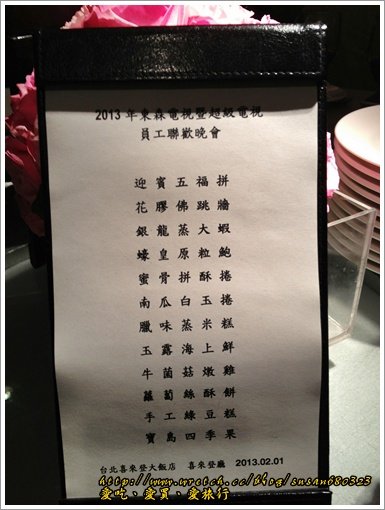 2013 年東森電視暨超級電視
員工聯歡晚會
迎賓五福拼
花膠佛跳牆
銀龍蒸大蝦
蠔皇原粒鮑
蜜骨拼酥捲
南瓜白玉捲
臘味蒸米糕
玉露海上鮮
牛菌菇燉雞
蘿蔔絲酥餅
手工綠豆糕
寶島四季果
台北喜來登大飯店 喜來登廳 2013.02.01
http://www.wretch.cc/blog/susan680323
愛吃、愛買、愛旅行